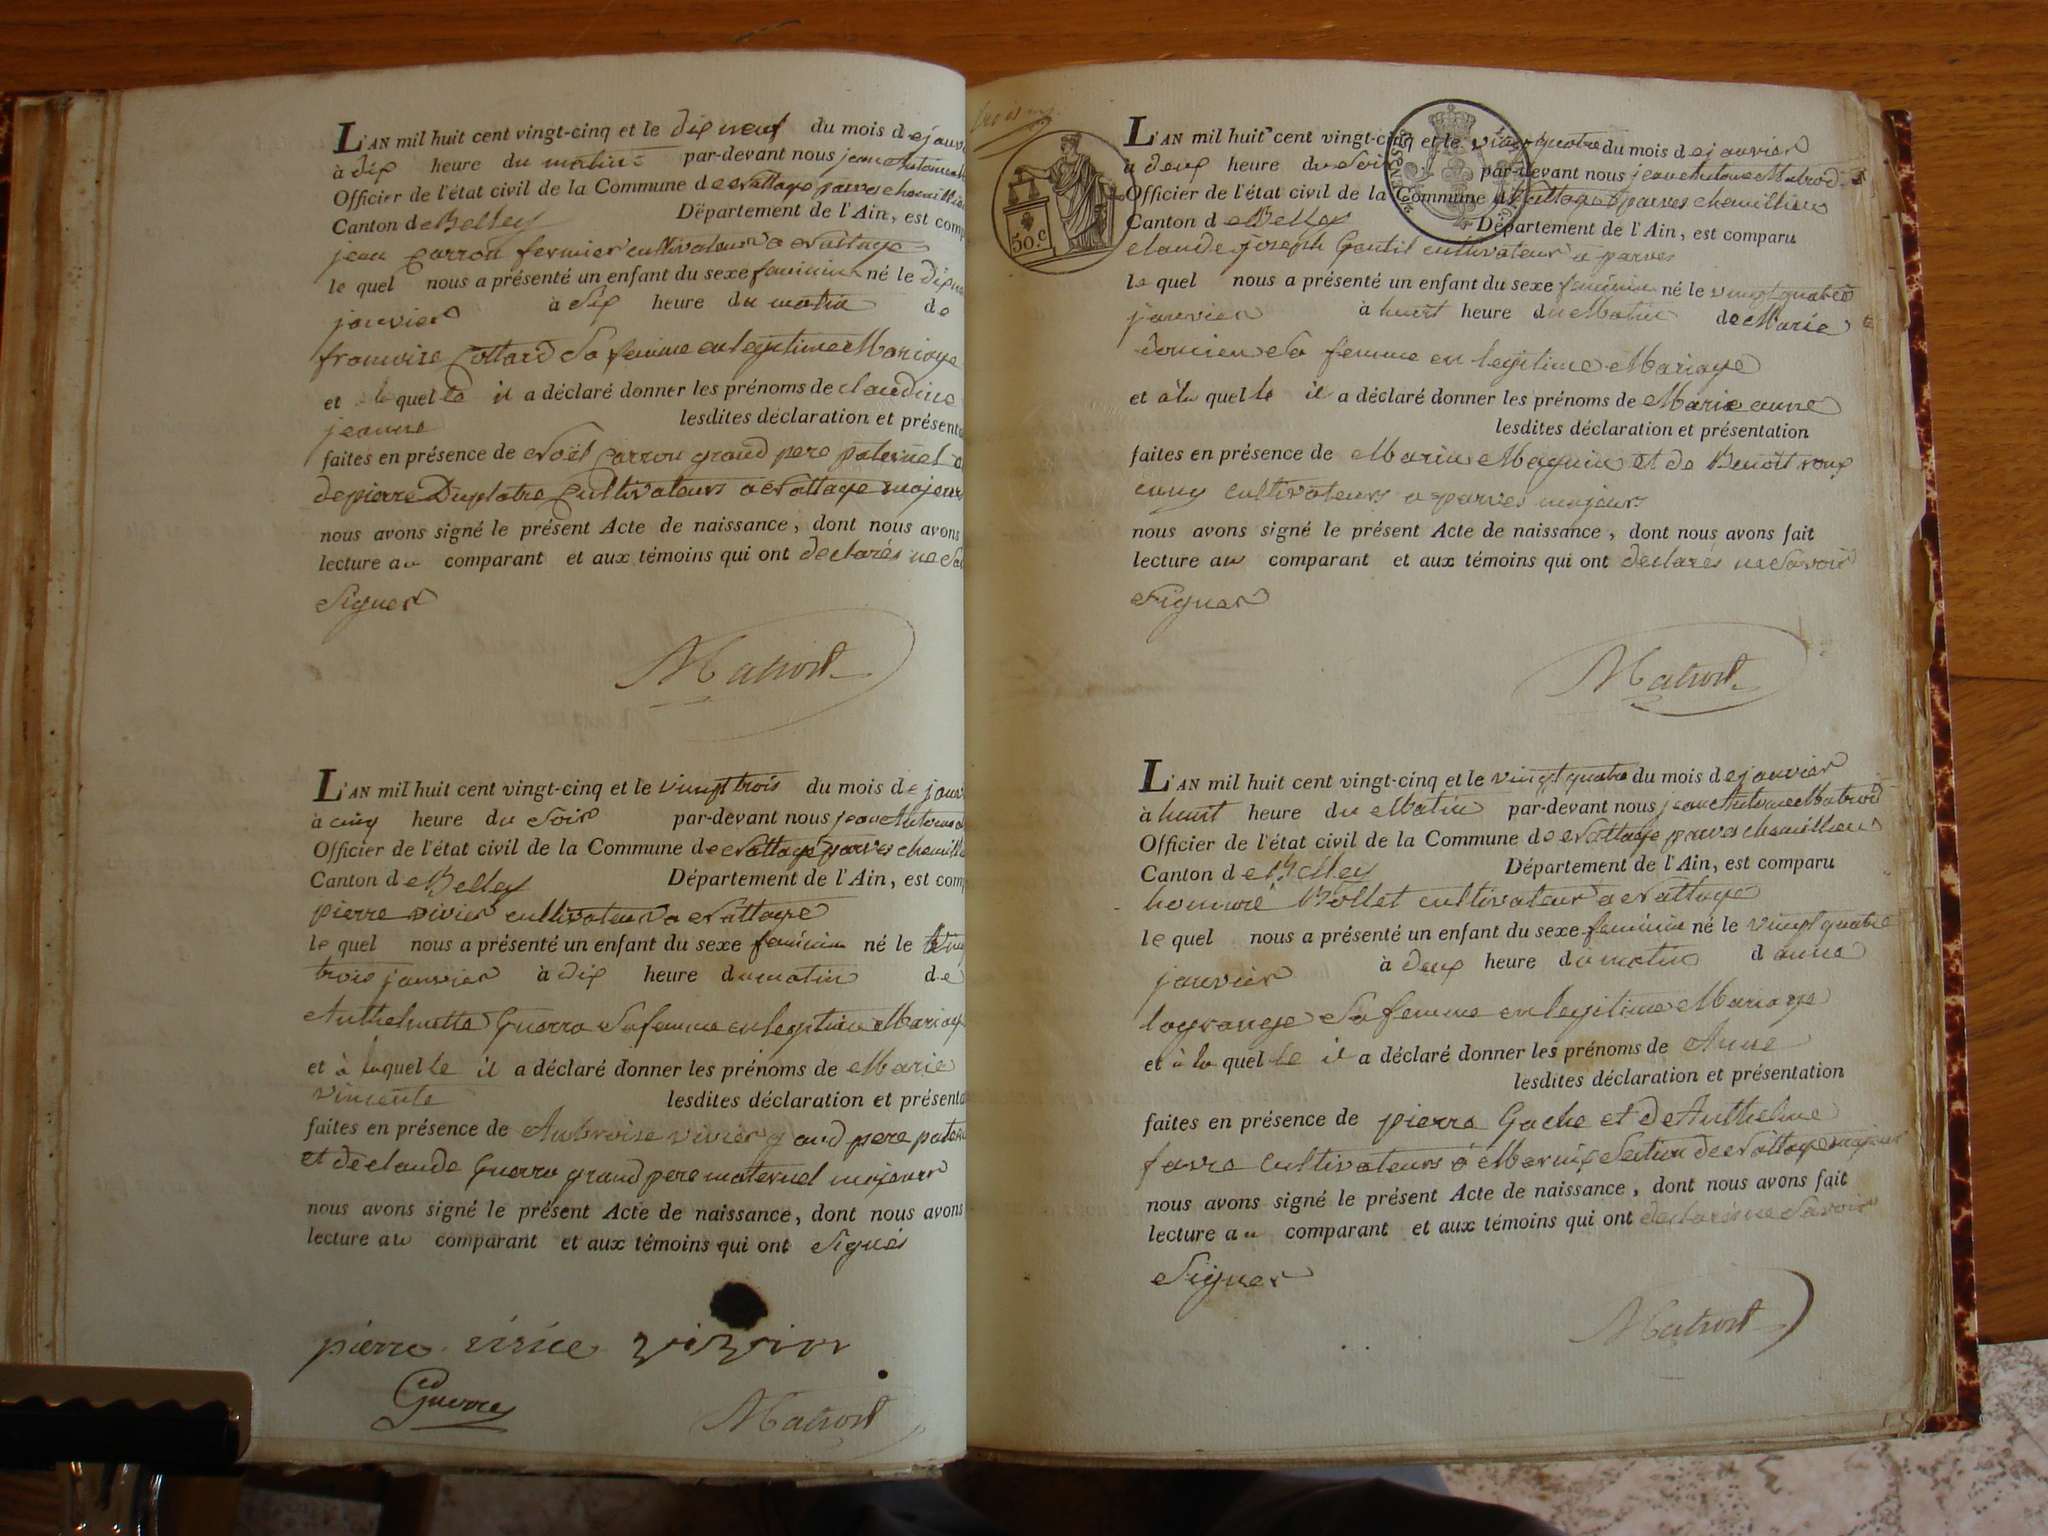 L'AN mil huit cent vingt-cinq et le dix neuf du mois de janv
à dix heure du matin par-devant nous jean Antoine
Officier de l'état civil de la Commune de Nattage parves chemillieu
Canton de Belley Département de l'Ain, est comp
jean Carron fermier cultivateur a Nattage
le quel nous a présenté un enfant du sexe feminin né le
janvier à Six heure du matin de
francoise Collard Sa femme en legitime Mariage
et la quelle il a déclaré donner les prénoms de claudine
jeanne lesdites déclaration et présent
faites en présence de Noël Carron grand pere paternel
de pierre Duplatre Cultivateurs a Nattage majeurs
nous avons signé le présent Acte de naissance, dont nous avons
lecture au comparant et aux témoins qui ont declarés ne Sa
Signer
Matrod
L'AN mil huit cent vingt-cinq et le vingt trois du mois de janv
à cinq heure du Soir par-devant nous jean Antoine
Officier de l'état civil de la Commune de Nattage parves chemill
Canton de Belley Département de l'Ain, est comp
pierre vivier cultivateur a Nattage
le quel nous a présenté un enfant du sexe feminin né le
trois janvier à dix heure du matin de
Anthelmette Guerre Sa femme en legitime Mariage
et à laquelle il a déclaré donner les prénoms de Marie
vincente lesdites déclaration et présent
faites en présence de Ambroise vivier grand pere patern
et de claude Guerre grand pere maternel majeurs
nous avons signé le présent Acte de naissance, dont nous avons
lecture au comparant et aux témoins qui ont Signés
pierre
Guerre Matrod
50.c
L'AN mil huit cent vingt-cinq et le vingt quatre du mois de janvier
à deux heure du Soir par-devant nous jean Antoine Matrod
Officier de l'état civil de la Commune de Nattage parves chemillieu
Canton de Belley Département de l'Ain, est comparu
claude joseph Gentil cultivateur a parves
le quel nous a présenté un enfant du sexe feminin né le vingt quatre
janvier à huit heure du Matin de Marie
Sa femme en legitime Mariage
et à la quelle il a déclaré donner les prénoms de Marie anne
lesdites déclaration et présentation
faites en présence de Marin Magnin et de Benoît roux
cultivateurs a parves majeurs
nous avons signé le présent Acte de naissance, dont nous avons fait
lecture au comparant et aux témoins qui ont declarés ne Savoir
Signer
Matrod
L'AN mil huit cent vingt-cinq et le vingt quatre du mois de janvier
à huit heure du Matin par-devant nous jean Antoine Matrod
Officier de l'état civil de la Commune de Nattage parves chemillieu
Canton de Belley Département de l'Ain, est comparu
honnoré Bollet cultivateur a Nattage
le quel nous a présenté un enfant du sexe feminin né le vingt quatre
janvier à deux heure du matin d anne
lagrange Sa femme en legitime Mariage
et à la quelle il a déclaré donner les prénoms de Anne
lesdites déclaration et présentation
faites en présence de pierre Gache et de Anthelme
favre cultivateurs a Section de Nattage majeurs
nous avons signé le présent Acte de naissance, dont nous avons fait
lecture au comparant et aux témoins qui ont declarés ne Savoir
Signer
Matrod